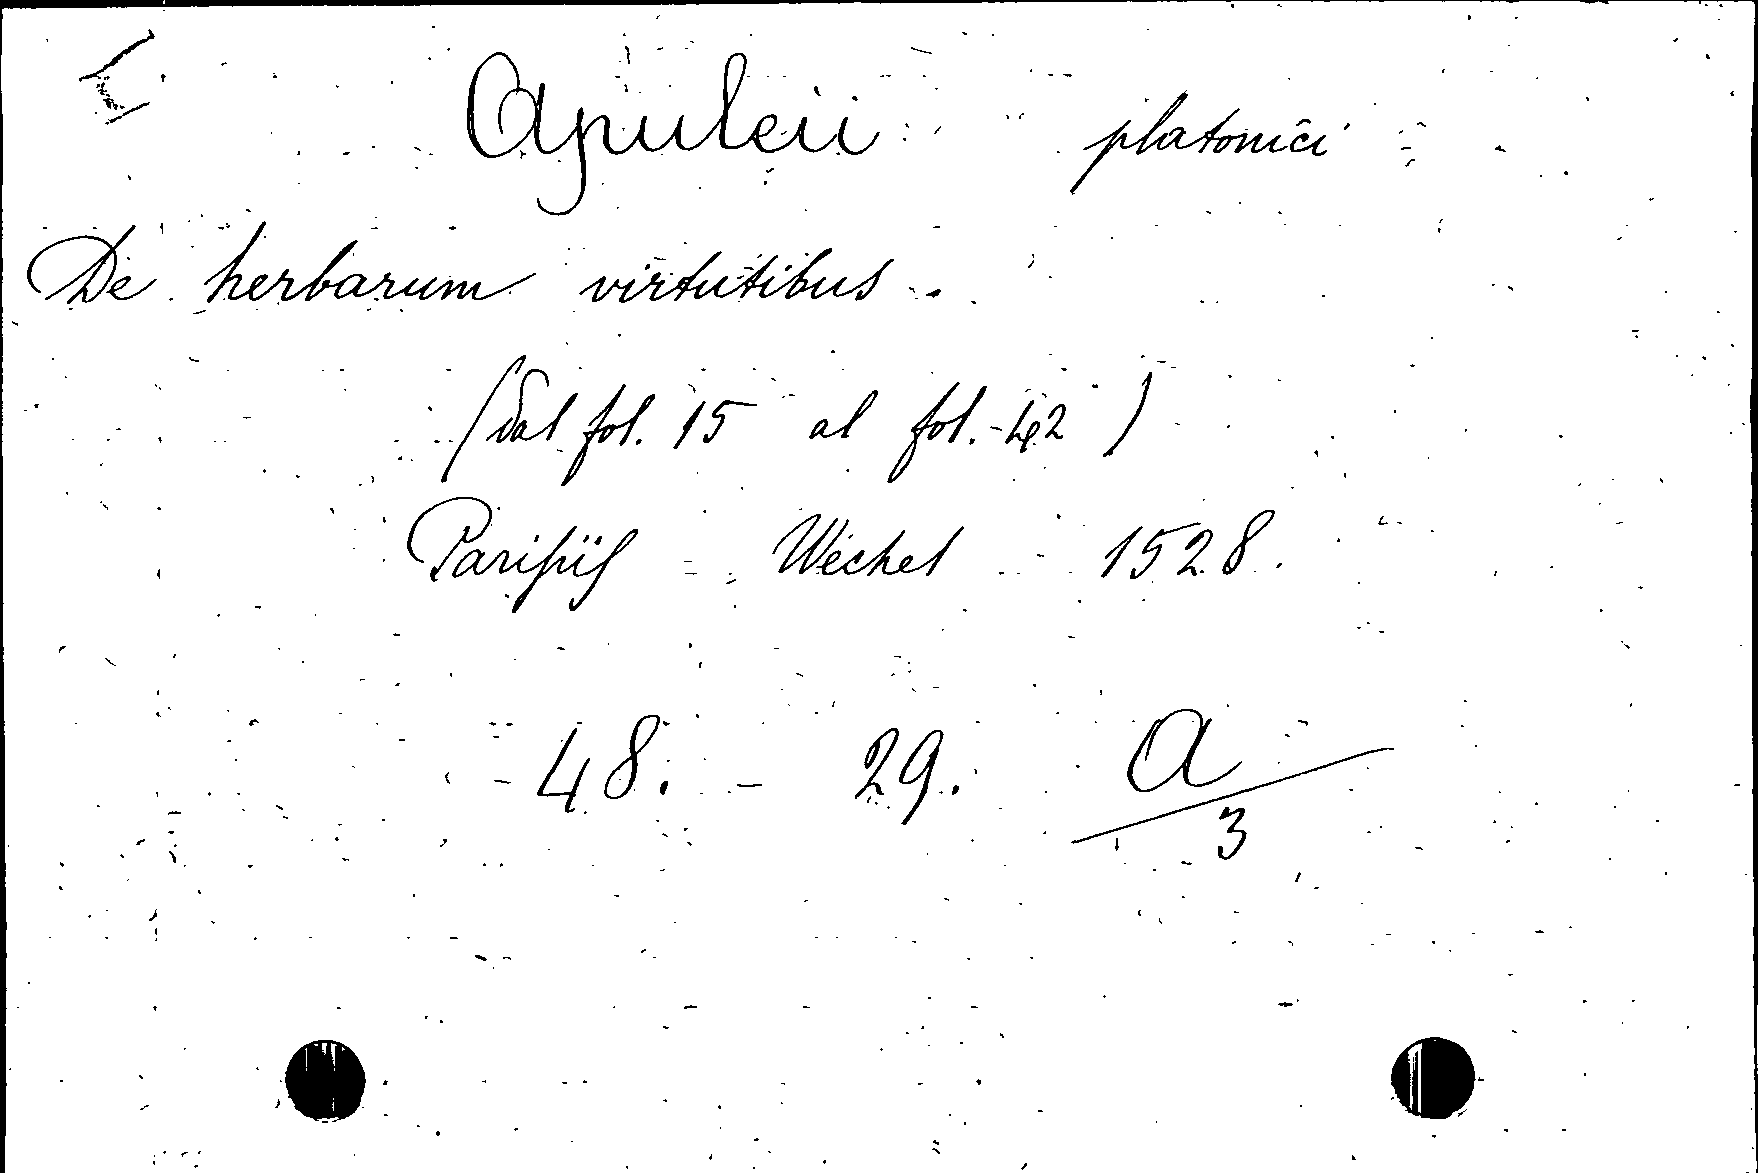 Apuleii platonici
De herbarum virtutibus.
(dal fol. 15 al fol. 42)
Parisiis - Wechel - 1528.
48. - 29. A/3